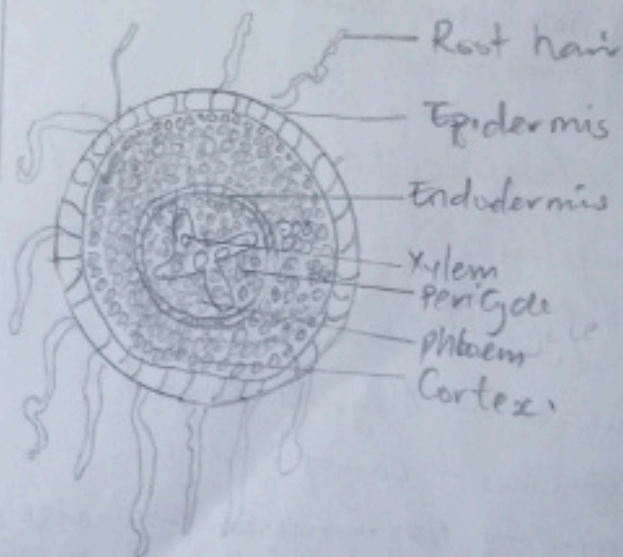 Root hair
Epidermis
Endodermis
Xylem
Pericycle
Phloem
Cortex.